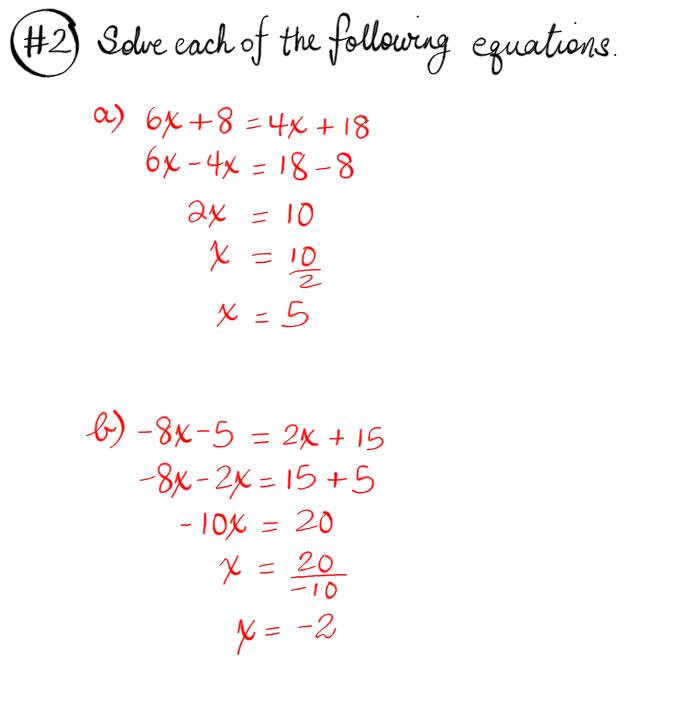 #2 Solve each of the following equations.
a) 6x + 8 = 4x + 18
6x - 4x = 18 - 8
2x = 10
x = 10/2
x = 5
b) -8x - 5 = 2x + 15
-8x - 2x = 15 + 5
-10x = 20
x = 20/-10
x = -2